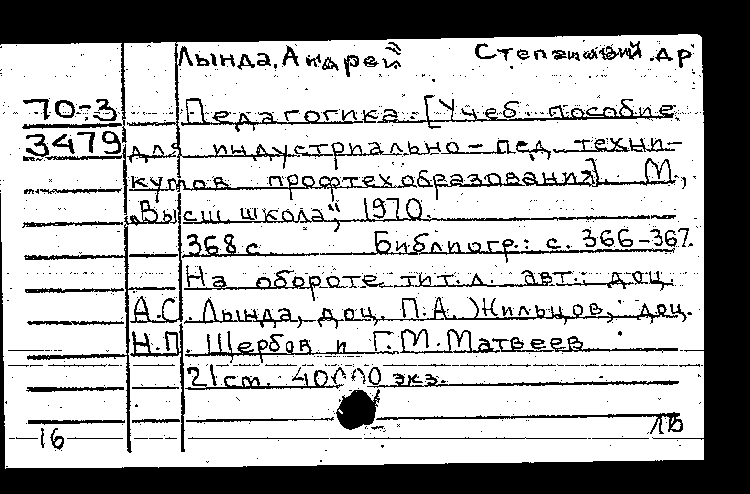 Лында, Андрей Степанович и др
70-3
3479
Педагогика. [Учеб. пособие
для индустриально-пед. техни-
кумов профтехобразования]. М.,
„Высш. школа“, 1970.
368 с. Библиогр.: с. 366-367.
На обороте тит. л. авт.: доц.
А.С. Лында, доц. П.А. Жильцов, доц.
Н.П. Щербов и Г.М. Матвеев
21 см. 40000 экз.
16